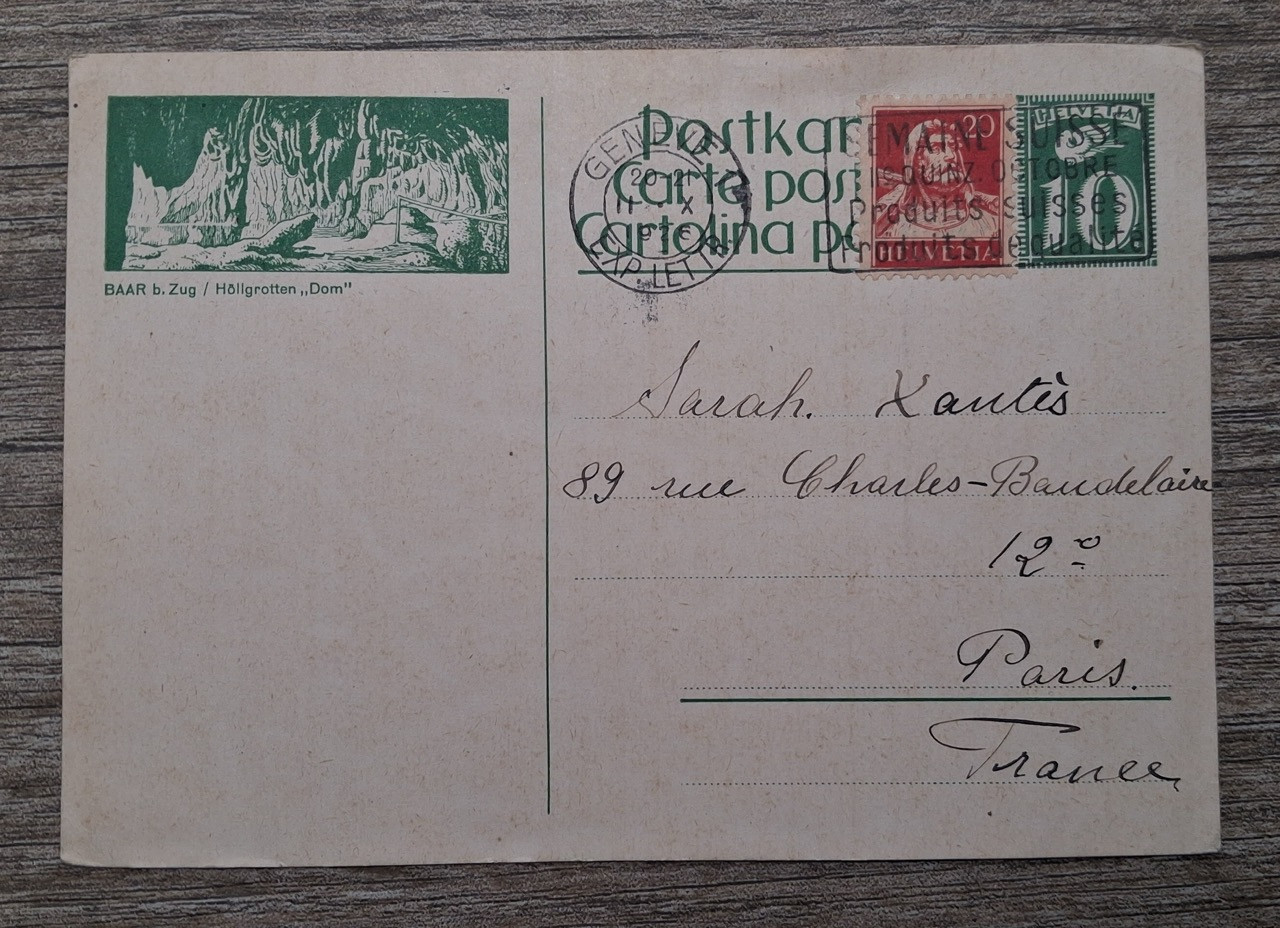 BAAR b. Zug / Höllgrotten „Dom"
Postkar
Carte pos
Cartolina po
GENEVE
20-21
EXP. LETTR
20
HELVETIA
HELVETIA
10
SEMAINE SUISSE
QUINZ. OCTOBRE
Produits suisses
Produits de qualité
Sarah. Xantès
89 rue Charles-Baudelaire
12º
Paris.
France